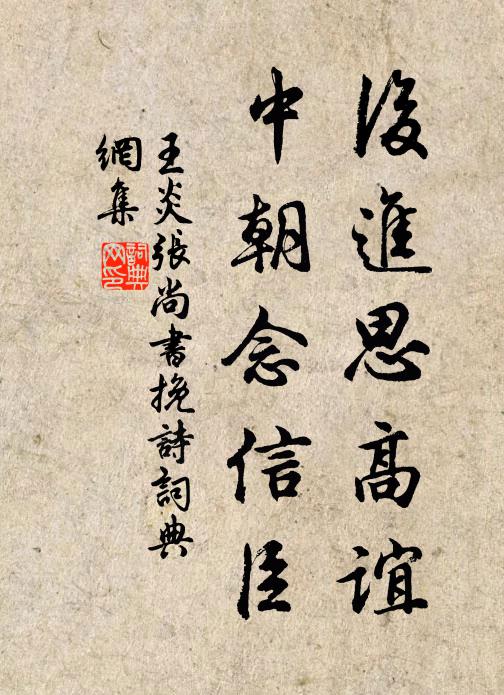 後進思高誼
中朝念信臣
王炎張尚書挽詩詞典
網集
詞典
网印